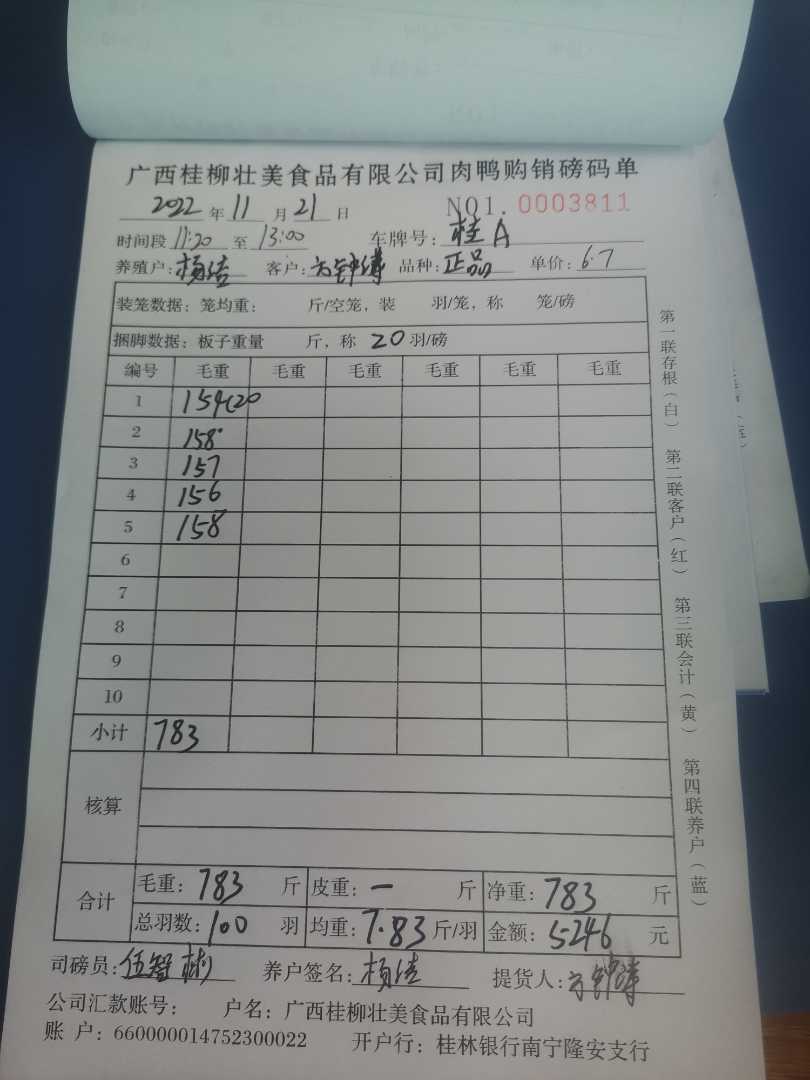 广西桂柳壮美食品有限公司肉鸭购销磅码单
2022 年 11 月 21 日 NO1. 0003811
时间段 11:20 至 13:00 车牌号: 桂A
养殖户: 杨 客户: 方钟涛 品种: 正品 单价: 6.7
装笼数据: 笼均重: 斤/空笼, 装 羽/笼, 称 笼/磅
捆脚数据: 板子重量 斤, 称 20 羽/磅
编号 毛重 毛重 毛重 毛重 毛重 毛重
1 154(20
2 158
3 157
4 156
5 158
6
7
8
9
10
小计 783
核算
合计 毛重: 783 斤 皮重: — 斤 净重: 783 斤
总羽数: 100 羽 均重: 7.83 斤/羽 金额: 5246 元
司磅员: 伍智彬 养户签名: 杨 提货人: 方钟涛
公司汇款账号: 户名: 广西桂柳壮美食品有限公司
账 户: 660000014752300022 开户行: 桂林银行南宁隆安支行
第一联存根(白) 第二联客户(红) 第三联会计(黄) 第四联养户(蓝)